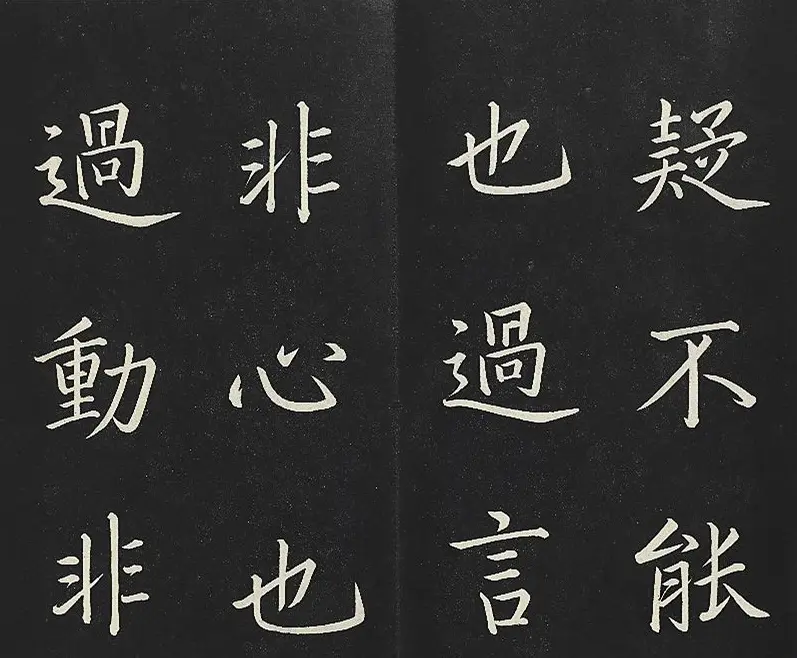 疑不能
也過言
非心也
過動非